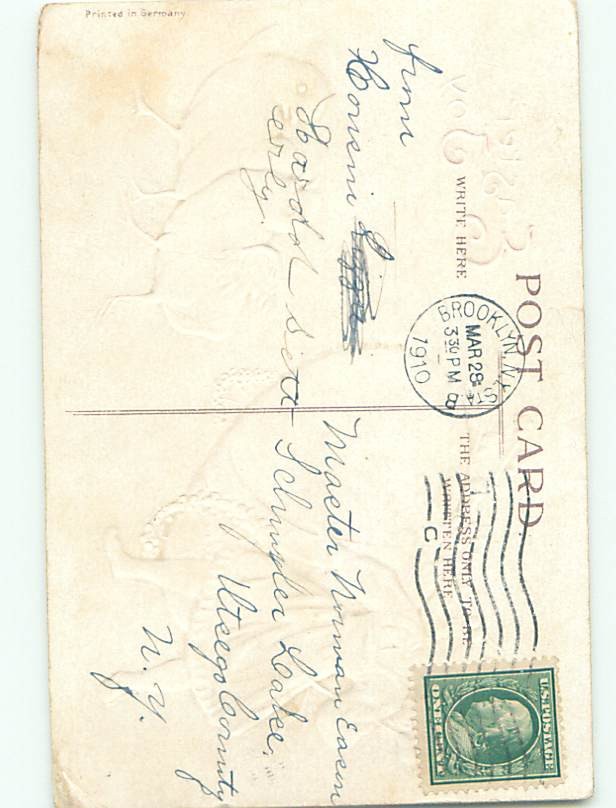 Printed in Germany.
POST CARD
WRITE HERE
THE ADDRESS ONLY TO BE
WRITTEN HERE
BROOKLYN, N.Y.
MAR 28
3 30 PM
1910
C
U.S. POSTAGE
ONE CENT
from
Cousin
Harold
erly.
Master Norman Eason
Schuyler Lake,
Otsego County
N. Y.